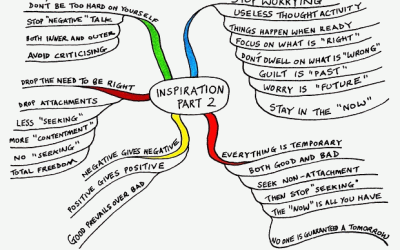 DON'T BE TOO HARD ON YOURSELF
STOP "NEGATIVE" TALK
BOTH INNER AND OUTER
AVOID CRITICISING
STOP WORRYING
USELESS THOUGHT ACTIVITY
THINGS HAPPEN WHEN READY
FOCUS ON WHAT IS "RIGHT"
DON'T DWELL ON WHAT IS "WRONG"
GUILT IS "PAST"
WORRY IS "FUTURE"
STAY IN THE "NOW"
INSPIRATION
PART 2
DROP THE NEED TO BE RIGHT
DROP ATTACHMENTS
LESS "SEEKING"
MORE "CONTENTMENT"
NO "SEEKING"
TOTAL FREEDOM
NEGATIVE GIVES NEGATIVE
POSITIVE GIVES POSITIVE
GOOD PREVAILS OVER BAD
EVERYTHING IS TEMPORARY
BOTH GOOD AND BAD
SEEK NON-ATTACHMENT
THEN STOP "SEEKING"
THE "NOW" IS ALL YOU HAVE
NO ONE IS GUARANTEED A TOMORROW